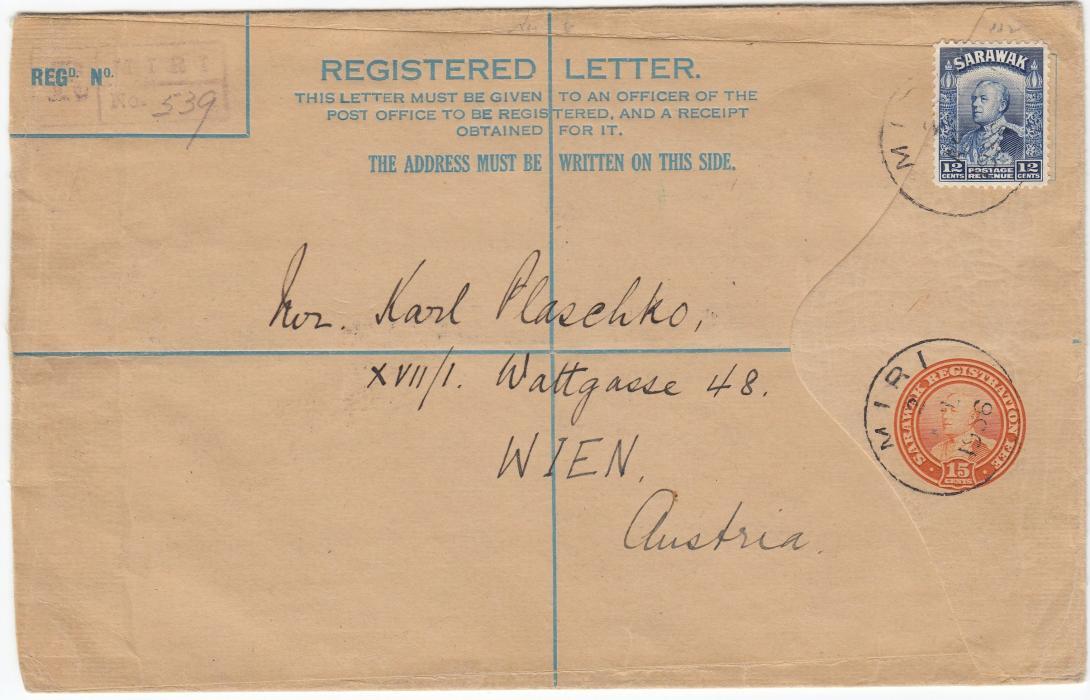 REGᴰ. Nº.
No. 539
REGISTERED LETTER.
THIS LETTER MUST BE GIVEN TO AN OFFICER OF THE
POST OFFICE TO BE REGISTERED, AND A RECEIPT
OBTAINED FOR IT.
THE ADDRESS MUST BE WRITTEN ON THIS SIDE.
SARAWAK
12 CENTS POSTAGE REVENUE 12 CENTS
MI
Karl Plaschko,
XVII/1. Wattgasse 48.
WIEN,
Austria.
MIRI
1936
SARAWAK REGISTRATION FEE
15
CENTS